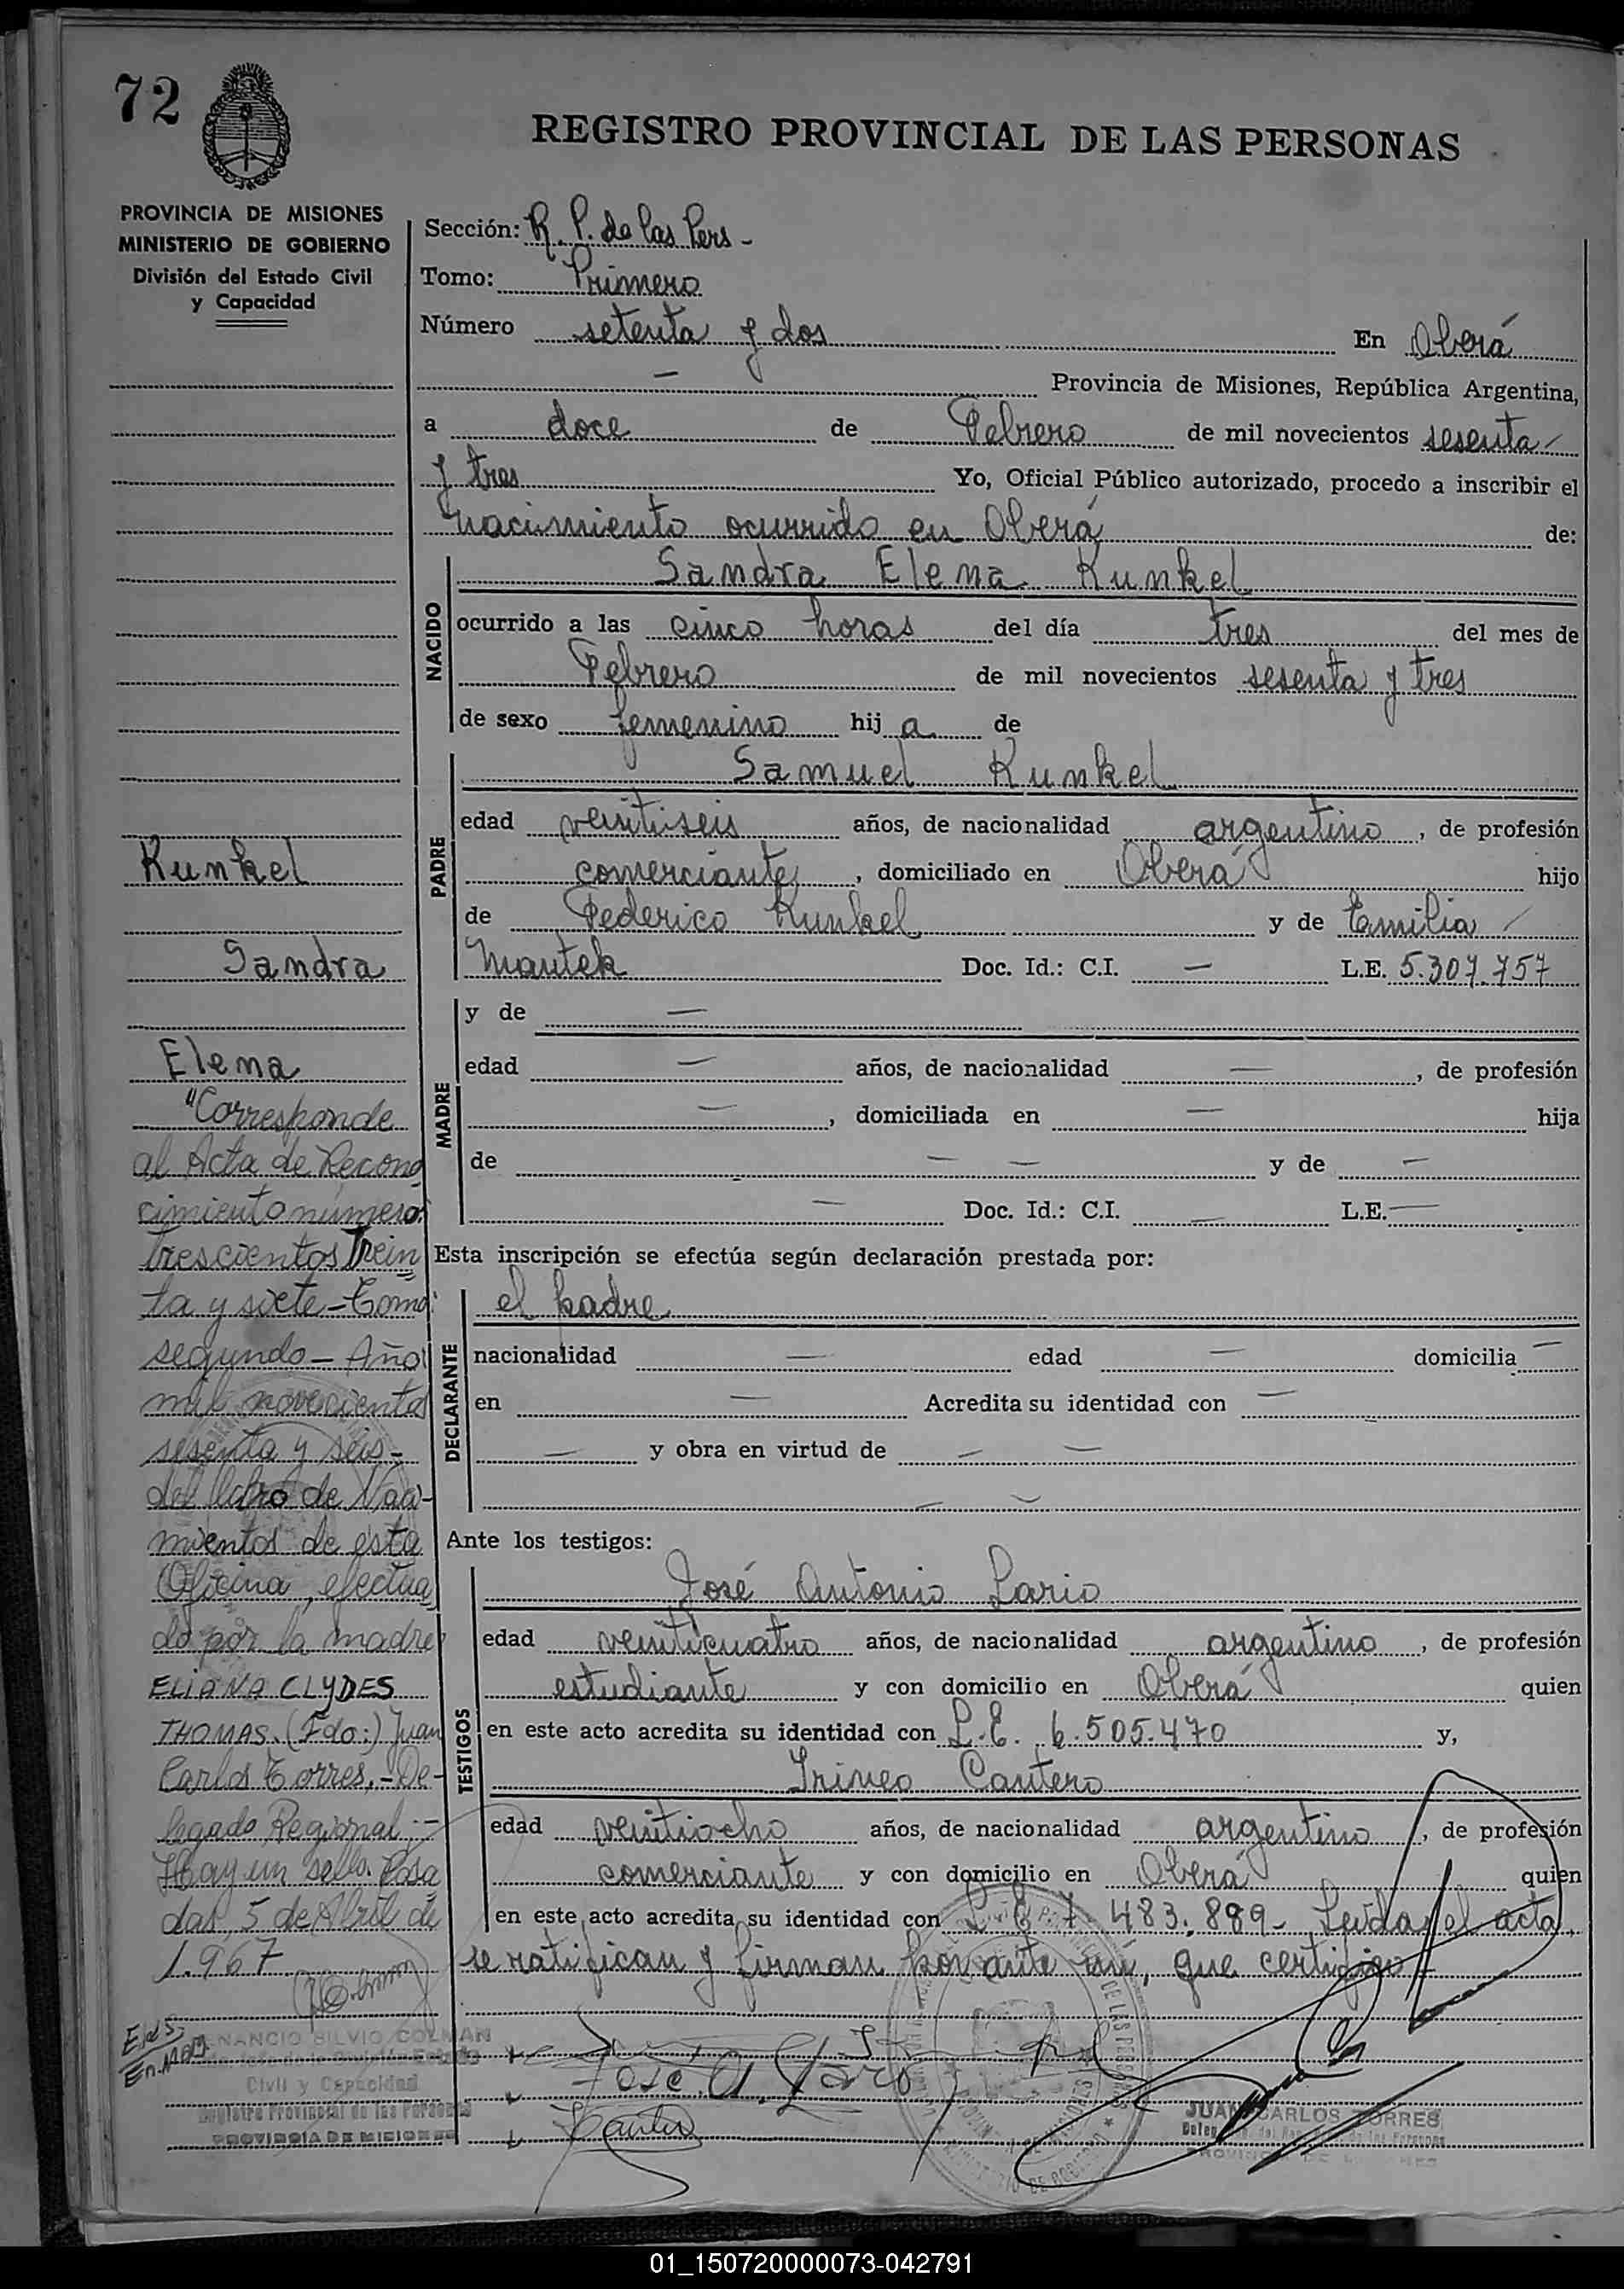 72
REGISTRO PROVINCIAL DE LAS PERSONAS
PROVINCIA DE MISIONES
MINISTERIO DE GOBIERNO
División del Estado Civil
y Capacidad
Kunkel
Sandra
Elena
"Corresponde
al Acta de Recono
cimiento número:
trescientos Trein
ta y siete - Tomo:
segundo - Año
mil novecientos
sesenta y seis -
del libro de Naci-
mientos de esta
Oficina, efectua
do por la madre
ELIANA CLYDES
THOMAS. (Fdo:) Juan
Carlos Torres, - De-
legado Regional -
Hay un sello. Posa
das, 5 de Abril de
1.967
VENANCIO SILVIO COLMAN
Civil y Capacidad
Registro Provincial de las Personas
PROVINCIA DE MISIONES
Sección: R. P. de las Pers -
Tomo: Primero
Número setenta y dos En Oberá
— Provincia de Misiones, República Argentina,
a doce de Febrero de mil novecientos sesenta
y tres Yo, Oficial Público autorizado, procedo a inscribir el
nacimiento ocurrido en Oberá de:
NACIDO
Sandra Elena Kunkel
ocurrido a las cinco horas del día tres del mes de
Febrero de mil novecientos sesenta y tres
de sexo femenino hij a de
PADRE
Samuel Kunkel
edad veintiseis años, de nacionalidad argentino, de profesión
comerciante, domiciliado en Oberá hijo
de Federico Kunkel y de Emilia
Mantek Doc. Id.: C.I. — L.E. 5.307.757
MADRE
y de —
edad — años, de nacionalidad —, de profesión
—, domiciliada en — hija
de — — y de —
— Doc. Id.: C.I. — L.E. —
Esta inscripción se efectúa según declaración prestada por:
DECLARANTE
el padre
nacionalidad — edad — domicilia —
en — Acredita su identidad con —
— y obra en virtud de — —
— —
Ante los testigos:
TESTIGOS
José Antonio Lario
edad veinticuatro años, de nacionalidad argentino, de profesión
estudiante y con domicilio en Oberá quien
en este acto acredita su identidad con L.E. 6.505.470 y,
Irineo Cantero
edad veintiocho años, de nacionalidad argentino, de profesión
comerciante y con domicilio en Oberá quien
en este acto acredita su identidad con L E 7 483.889 - Leída el acta,
se ratifican y firman por ante mí, que certifico
José A. Lario
JUAN CARLOS TORRES
01_150720000073-042791